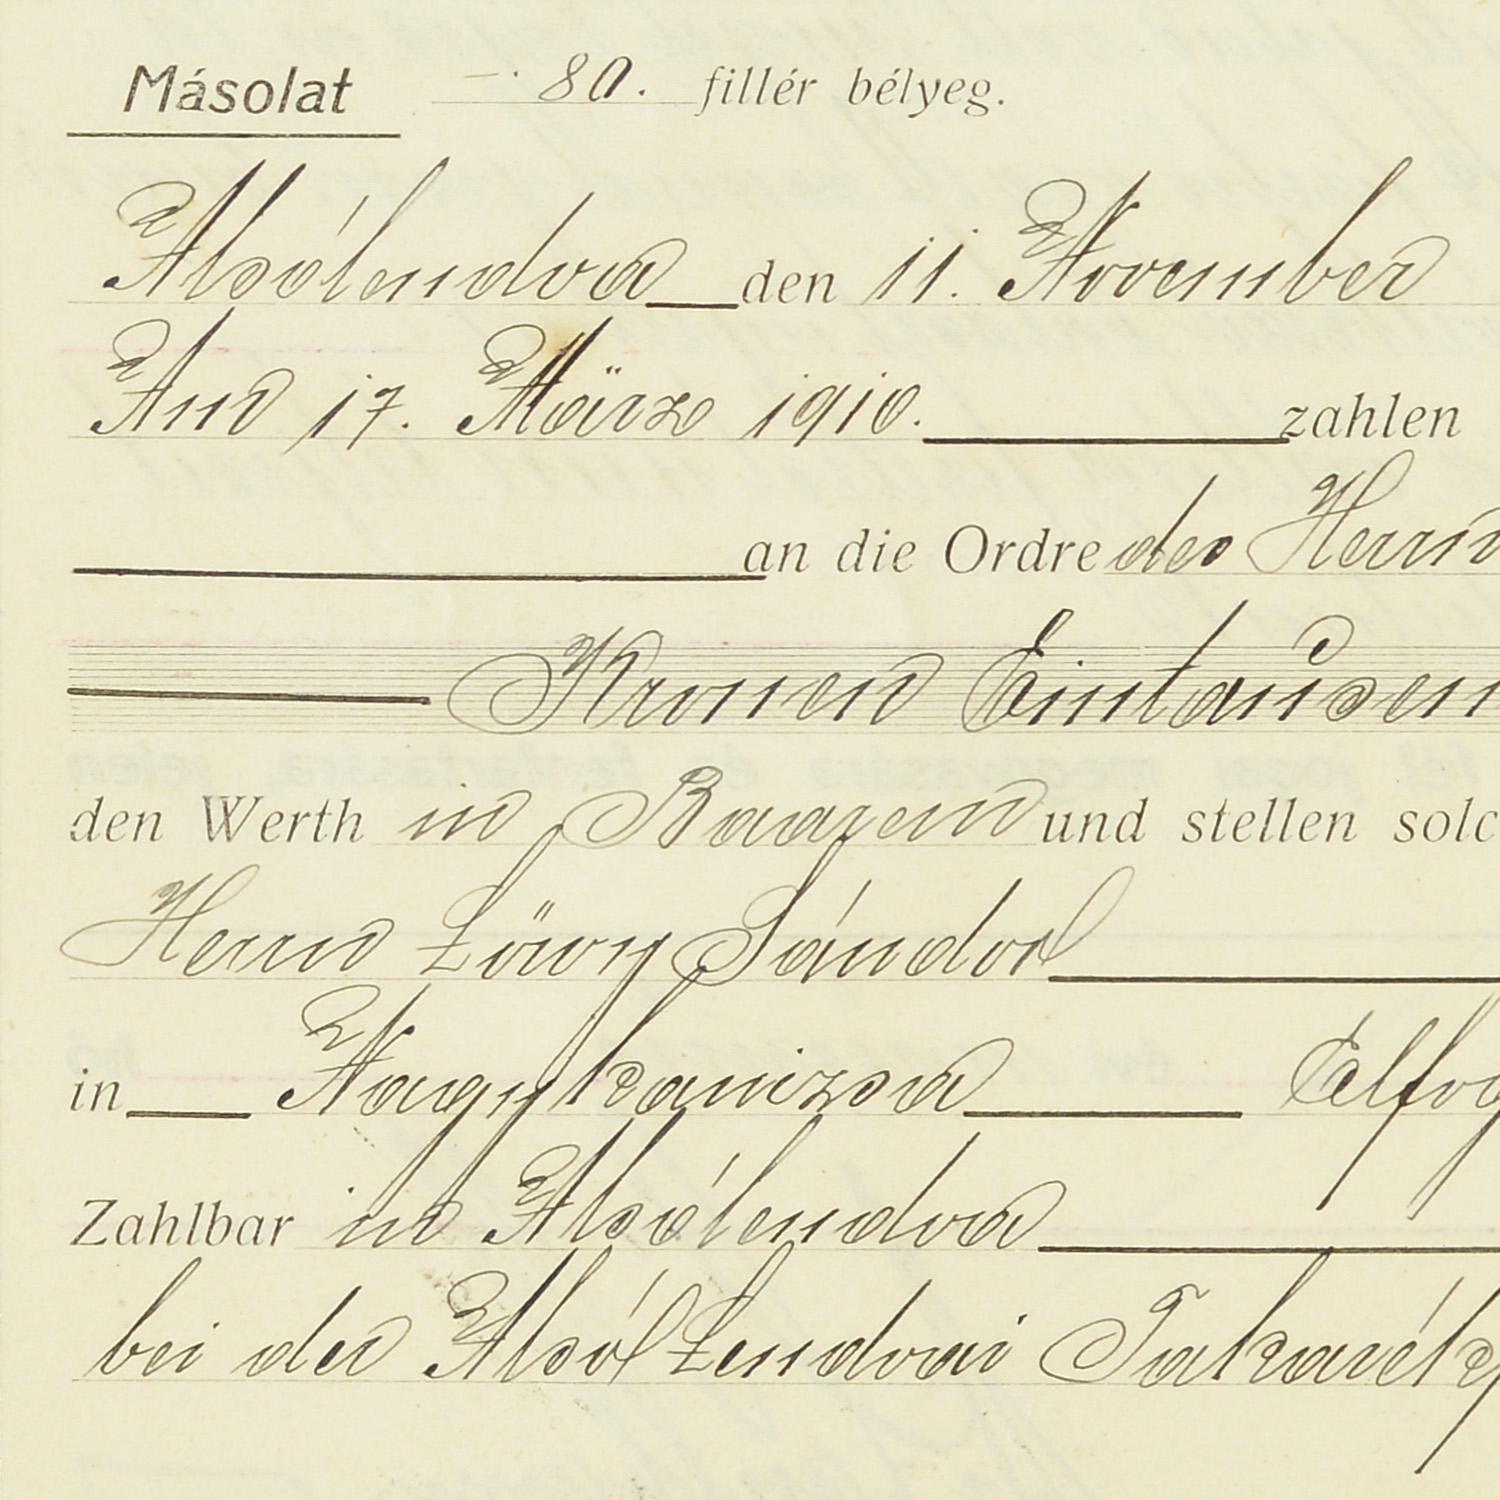 Másolat —. 80. fillér bélyeg.
Alsólendva den 11. November
Am 17. März 1910. zahlen
an die Ordre des Herrn
Kronen Eintausen
den Werth in Baarem und stellen solc
Herrn Löwy Sándor
in Nagykanizsa Elfog
Zahlbar in Alsólendva
bei der Alsól Lendvai Takarékp